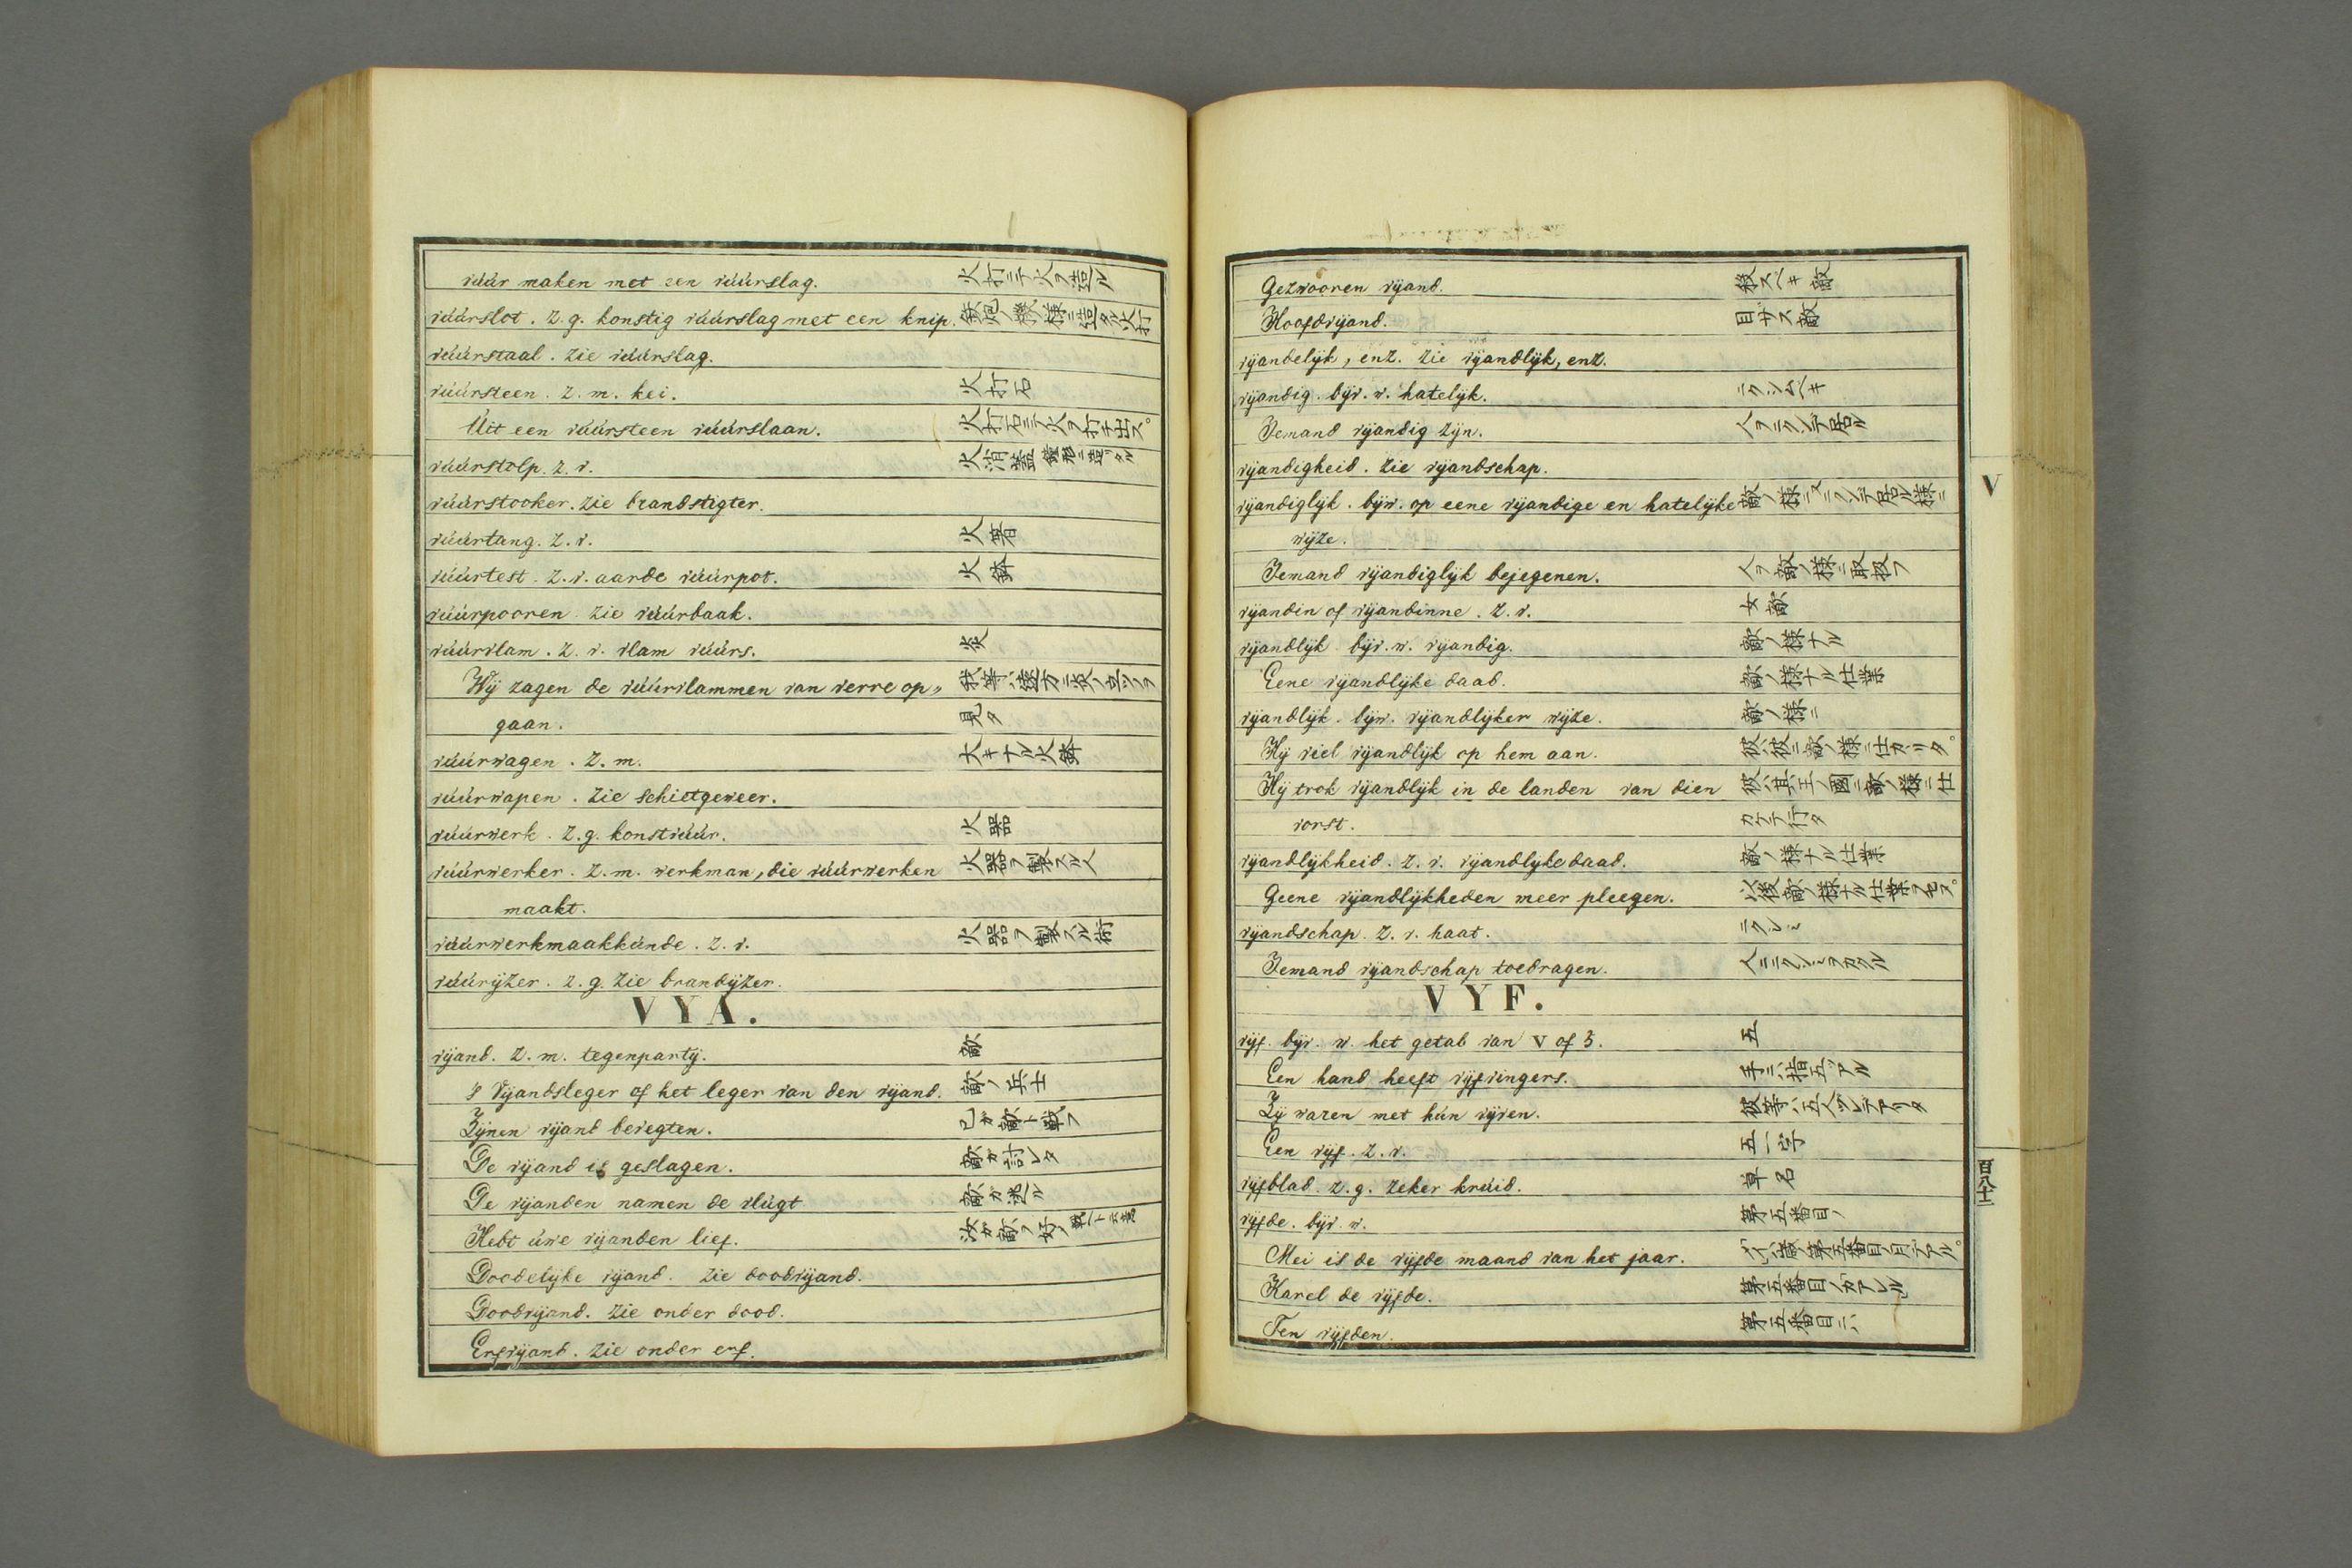 vúúr maken met een vúúrslag. 火打ニテ火ヲ造ル
vúúrslot. z.g. konstig vúúrslag met een knip. 鉄炮ノ機ノ様ニ造タル火打
vúúrstaal. zie vúúrslag.
vúúrsteen. z.m. kei. 火打石
Uit een vúúrsteen vúúrslaan. 火打石ニテ火ヲ打チ出ス。
vúúrstolp. z.v. 火消蓋 鐘形ニ造リタル
vúúrstooker. zie brandstigter.
vúúrtang. z.v. 火箸
vúúrtest. z.v. aarde vúúrpot. 火鉢
vúúrpooren. zie vúúrbaak.
vúúrvlam. z.v. vlam vúúrs. 炎
Wij zagen de vúúrvlammen van verre op„ 我等ハ遠方ニ炎ノ立ツヲ
gaan. 見タ
vúúrwagen. z.m. 大キナル火鉢
vúúrwapen. zie schietgeweer.
vúúrwerk. z.g. konstvúúr. 火器
vúúrwerker. z.m. werkman, die vúúrwerken 火器ヲ製スル人
maakt.
vúúrwerkmaakkúnde. z.v. 火器ヲ製スル術
vúúrijzer. z.g. zie brandijzer.
VYA.
vijand. z.m. tegenpartij. 敵
's Vijandsleger of het leger van den vijand. 敵ノ兵士
Zijnen vijand bevegten. 己ガ敵ト戦フ
De vijand is geslagen. 敵ガ討レタ
De vijanden namen de vlúgt 敵ガ逃ル
Hebt úwe vijanden lief. 汝ガ敵ヲ好ノ
Doodelijke vijand. zie doodvijand.
Doodvijand. zie onder dood.
Erfvijand. zie onder erf.
Gezwooren vijand. 殺スベキ敵
Hoofdvijand. 目ザス敵
vijandelijk, enz. zie vijandlijk, enz.
vijandig. bijv. w. hatelijk. ニクシムベキ
Iemand vijandig zijn. 人ヲニクンデ居ル
vijandigheid. zie vijandschap.
vijandiglijk. bijw. op eene vijandige en hatelijke 敵ノ様ニ又ニクンデ居ル様ニ
wijze.
Iemand vijandiglijk bejegenen. 人ヲ敵ノ様ニ取扱フ
vijandin of vijandinne. z.v. 女敵
vijandlijk. bijv. w. vijandig. 敵ノ様ナル
Eene vijandlijke daad. 敵ノ様ナル仕業
vijandlijk. bijw. vijandlijker wijze. 敵ノ様ニ
Hij viel vijandlijk op hem aan. 彼ハ彼ニ敵ノ様ニ仕カヽリタ。
Hij trok vijandlijk in de landen van dien 彼ハ其王ノ國ニ敵ノ様ニ仕
vorst. カケテ行タ
vijandlijkheid. z.v. vijandlijke daad. 敵ノ様ナル仕業
Geene vijandlijkheden meer pleegen. 以後敵ノ様ナル仕業ヲセヌ。
vijandschap. z.v. haat. ニクシミ
Iemand vijandschap toedragen. 人ニニクシミヲカクル
VYF.
vijf. bijv. w. het getal van V of 5. 五
Een hand heeft vijf vingers. 手ニハ指五ツアル
Zij waren met hún vijven. 彼等ハ五人ヅレデアリタ
Een vijf. z.v. 五ノ字
vijfblad. z.g. zeker krúid. 草名
vijfde. bijv. w. 第五番目ノ
Mei is de vijfde maand van het jaar. 歳ノ第五番目ノ月デアル。
Karel de vijfde. 第五番目ノカアレル
Ten vijfden. 第五番目ニハ
V
百八十二